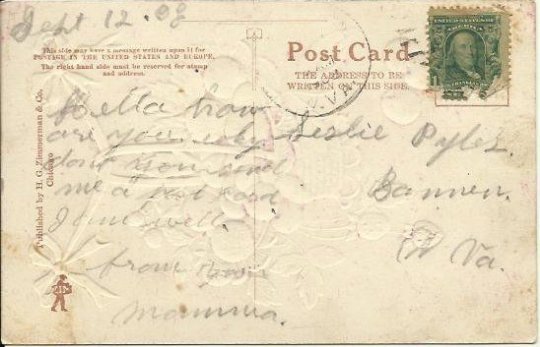 Sept 12. 08
This side may have a message written upon it for
POSTAGE IN THE UNITED STATES AND EUROPE.
The right hand side must be reserved for stamp
and address.
Published by H. G. Zimmerman & Co.
Chicago
Hello how
are you why
dont you send
me a post card
I am well.
from your
mamma.
Post Card
THE ADDRESS TO BE
WRITTEN ON THIS SIDE.
Leslie Pyles.
W Va.